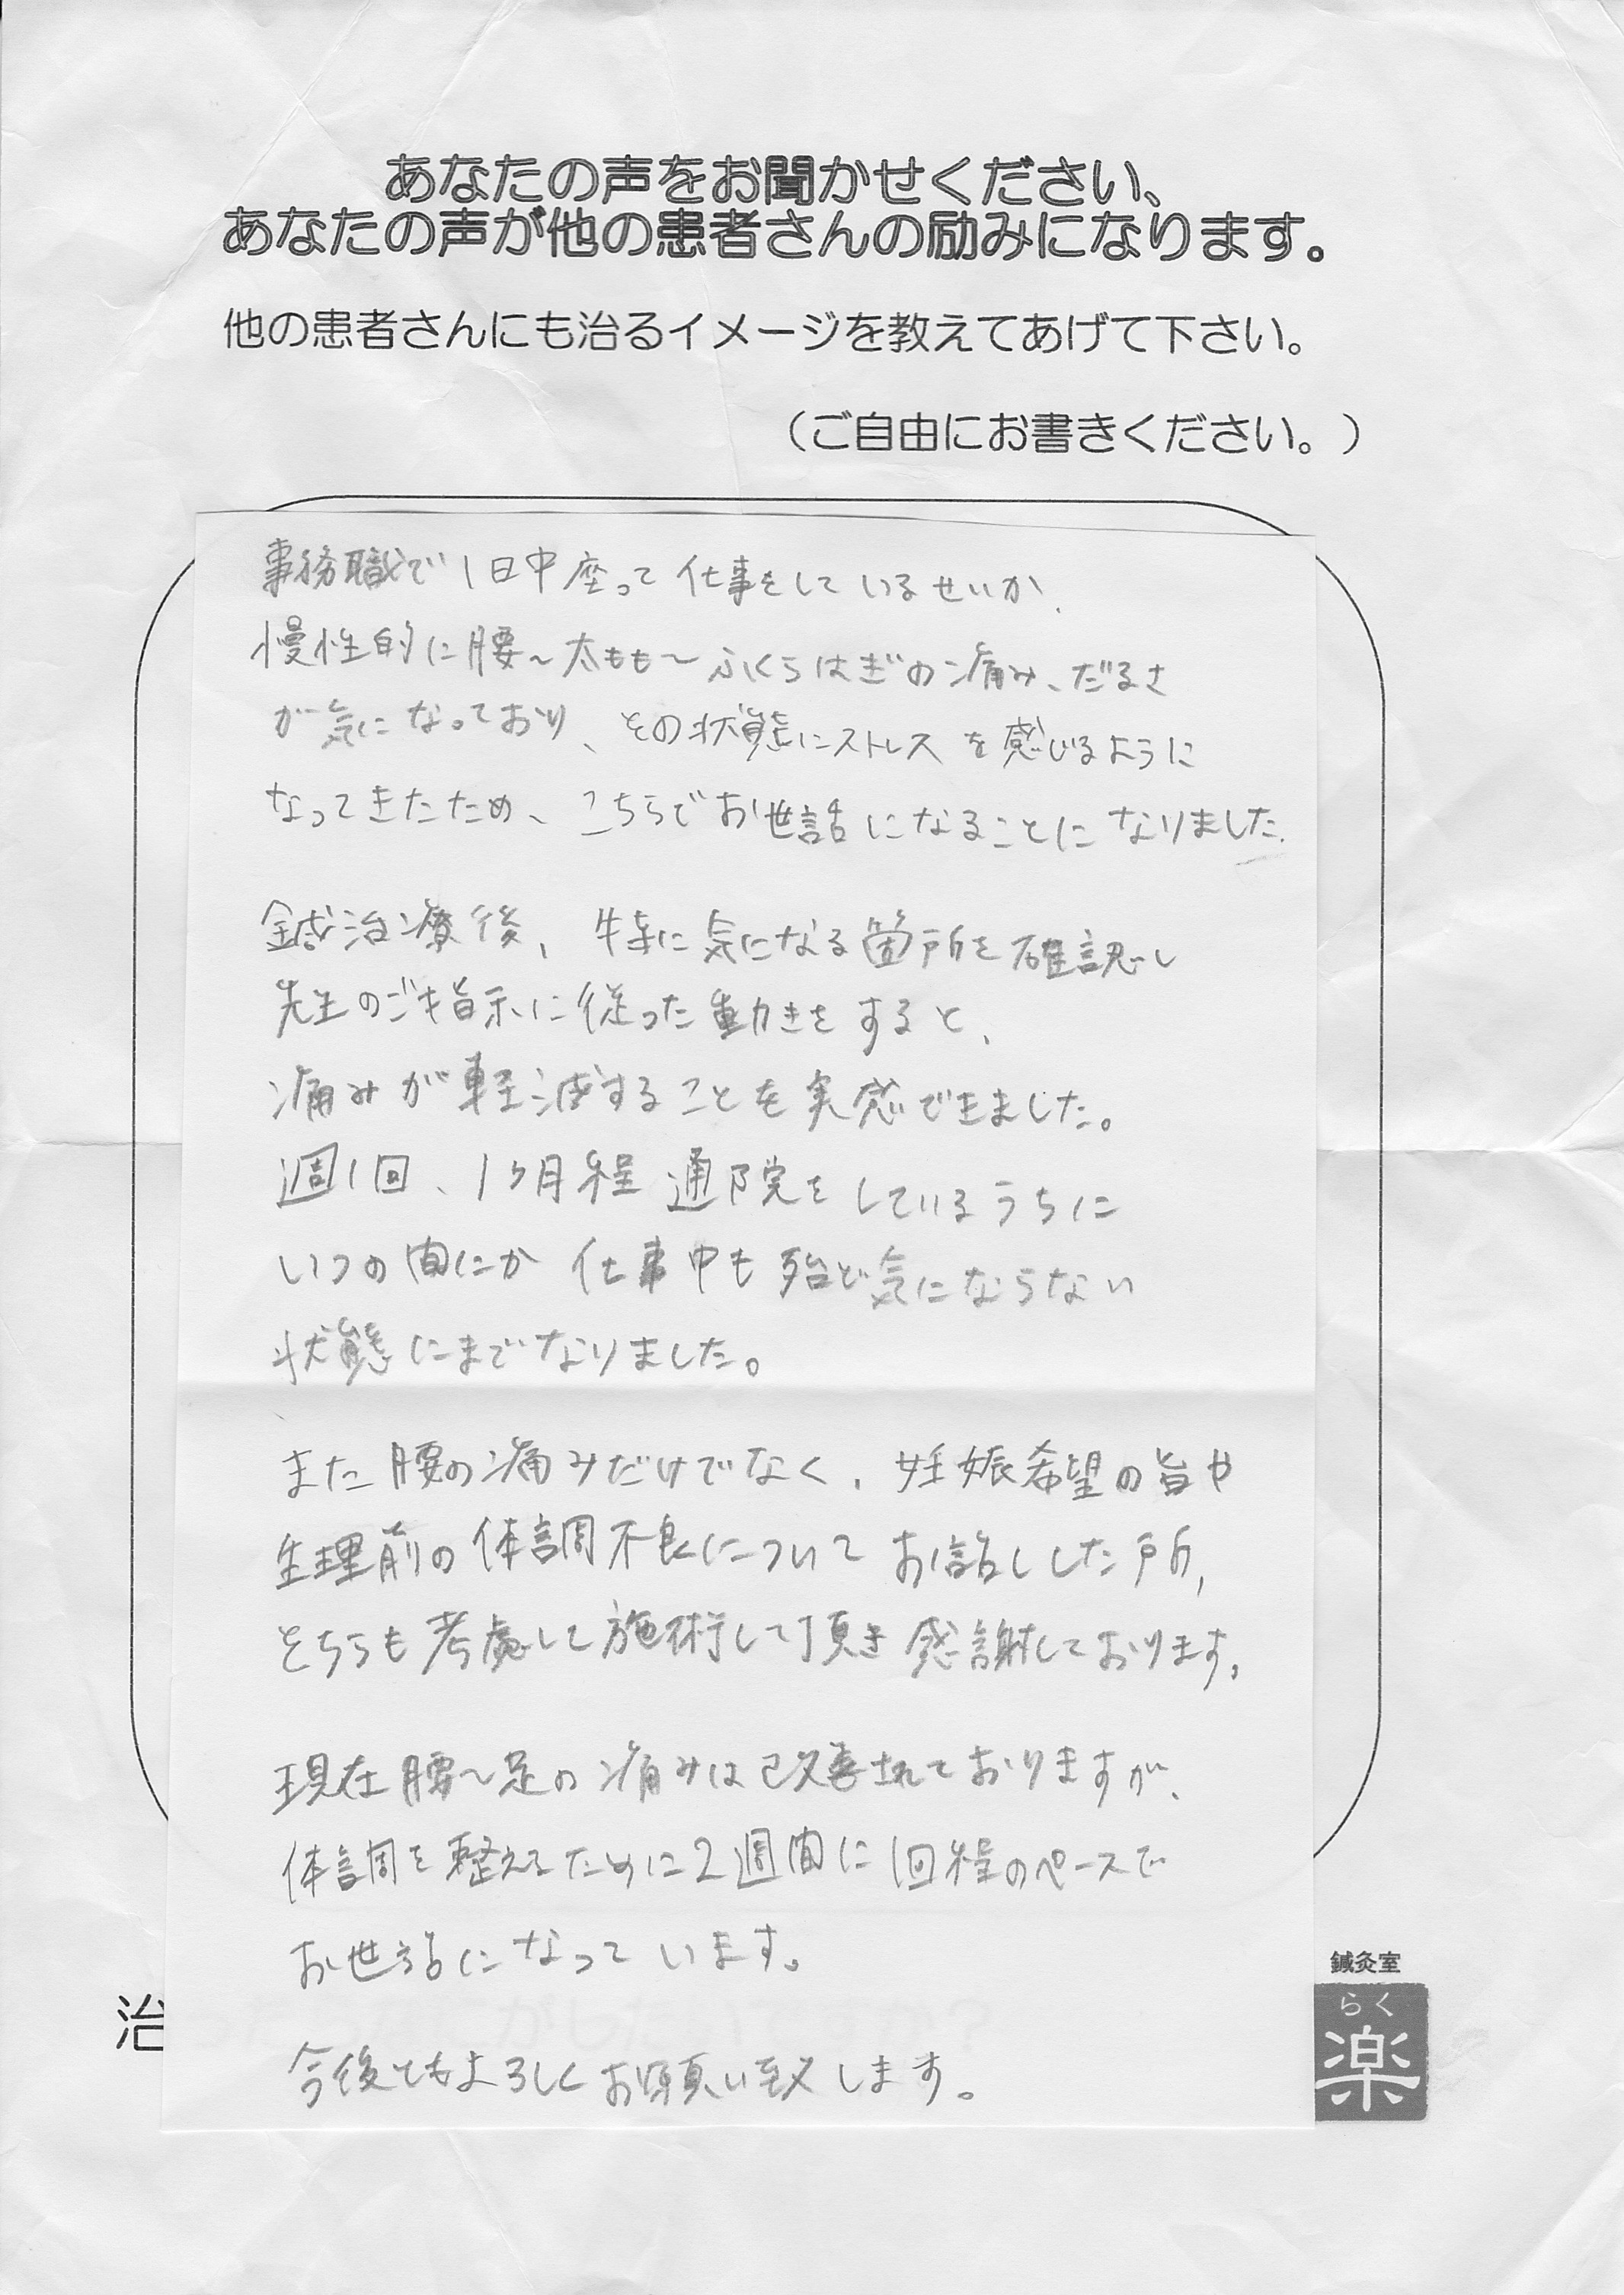 あなたの声をお聞かせください、
あなたの声が他の患者さんの励みになります。
他の患者さんにも治るイメージを教えてあげて下さい。
（ご自由にお書きください。）
事務職で1日中座って仕事をしているせいか、
慢性的に腰～太もも～ふくらはぎの痛み、だるさ
が気になっており、その状態にストレスを感じるように
なってきたため、こちらでお世話になることになりました。
鍼治療後、特に気になる箇所を確認し
先生のご指示に従った動きをすると、
痛みが軽減することを実感できました。
週1回、1ヶ月程通院をしているうちに
いつの間にか仕事中も殆ど気にならない
状態にまでなりました。
また腰の痛みだけでなく、妊娠希望の旨や
生理前の体調不良についてお話しした所、
どちらも考慮して施術して頂き感謝しております。
現在腰～足の痛みは改善されておりますが、
体調を整えるために2週間に1回程のペースで
お世話になっています。
今後ともよろしくお願い致します。
治
鍼灸室
らく
楽